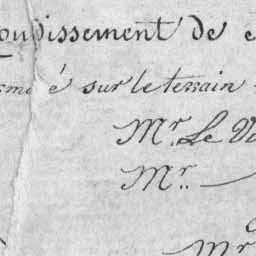 ondissement de
é sur le terrain
Mr. Le
Mr.
Mr